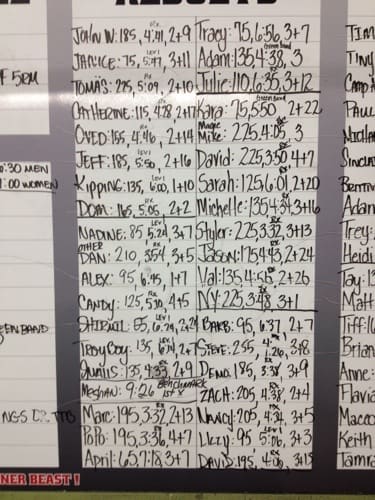 RESULTS
JOHN W: 185, 4:41, 2+9
RX
JANICE: 75, 5:47, 3+11
LEV 1
TOMÁS: 225, 5:09, 2+10
RX
CATHERINE: 115, 4:28, 2+17
RX
OVED: 155, 4:46, 2+14
RX
JEFF: 185, 5:50, 2+16
LEV 1
KIPPING: 135, 6:00, 1+10
LEV 1
DOM: 165, 5:05, 2+2
RX
NADINE: 85, 5:24, 3+7
LEV 1
OTHER
DAN: 210, 3:54, 3+5
RX
ALEX: 95, 6:45, 1+7
CANDY: 125, 5:30, 4+5
RX
2+24
TEDDY BOY: 135, 2+7
LEV 1
135, 4:33, 2+9
MEGHAN: 9:26 BENCHMARK
1ST RX
Marc: 195, 3:32, 2+13
POPO: 195, 3:36, 4+7
April: 65, 7:18, 3+7
Tracy: 75, 6:56, 3+7
Adam: 135, 4:38, 3
Green Band
Julie: 110, 6:35, 3+12
Kara: 75, 5:50, 2+22
Green Band
Mike: 225, 4:05, 3
David: 225, 3:50, 4+7
Sarah: 125, 6:01, 2+20
Michelle: 135, 4:34, 3+16
Styler: 225, 3:32, 3+13
Jason: 175, 4:43, 2+24
Val: 135, 4:56, 2+26
NY: 225, 3:48, 3+1
BARB: 95, 6:37, 2+7
STEVE: 255
DENO: 185, 3:38, 3+9
ZACH: 205, 4:38, 2+4
NANCY: 205, 4:34, 3+5
95, 5:06, 3+3
DAVID: 195, 4:06, 3+15
OF 5RM
0:30 MEN
1:00 WOMEN
EEN BAND
NGS
TTB
NER BEAST!
TIM
TINY
CAMP
PAUL
MICHA
SINCLAI
Adam
Trey:
Heidi
Tay: 13
Matt
Tiff: 16
Brian
Anne:
Flavia
Macco
Keith
Tamra